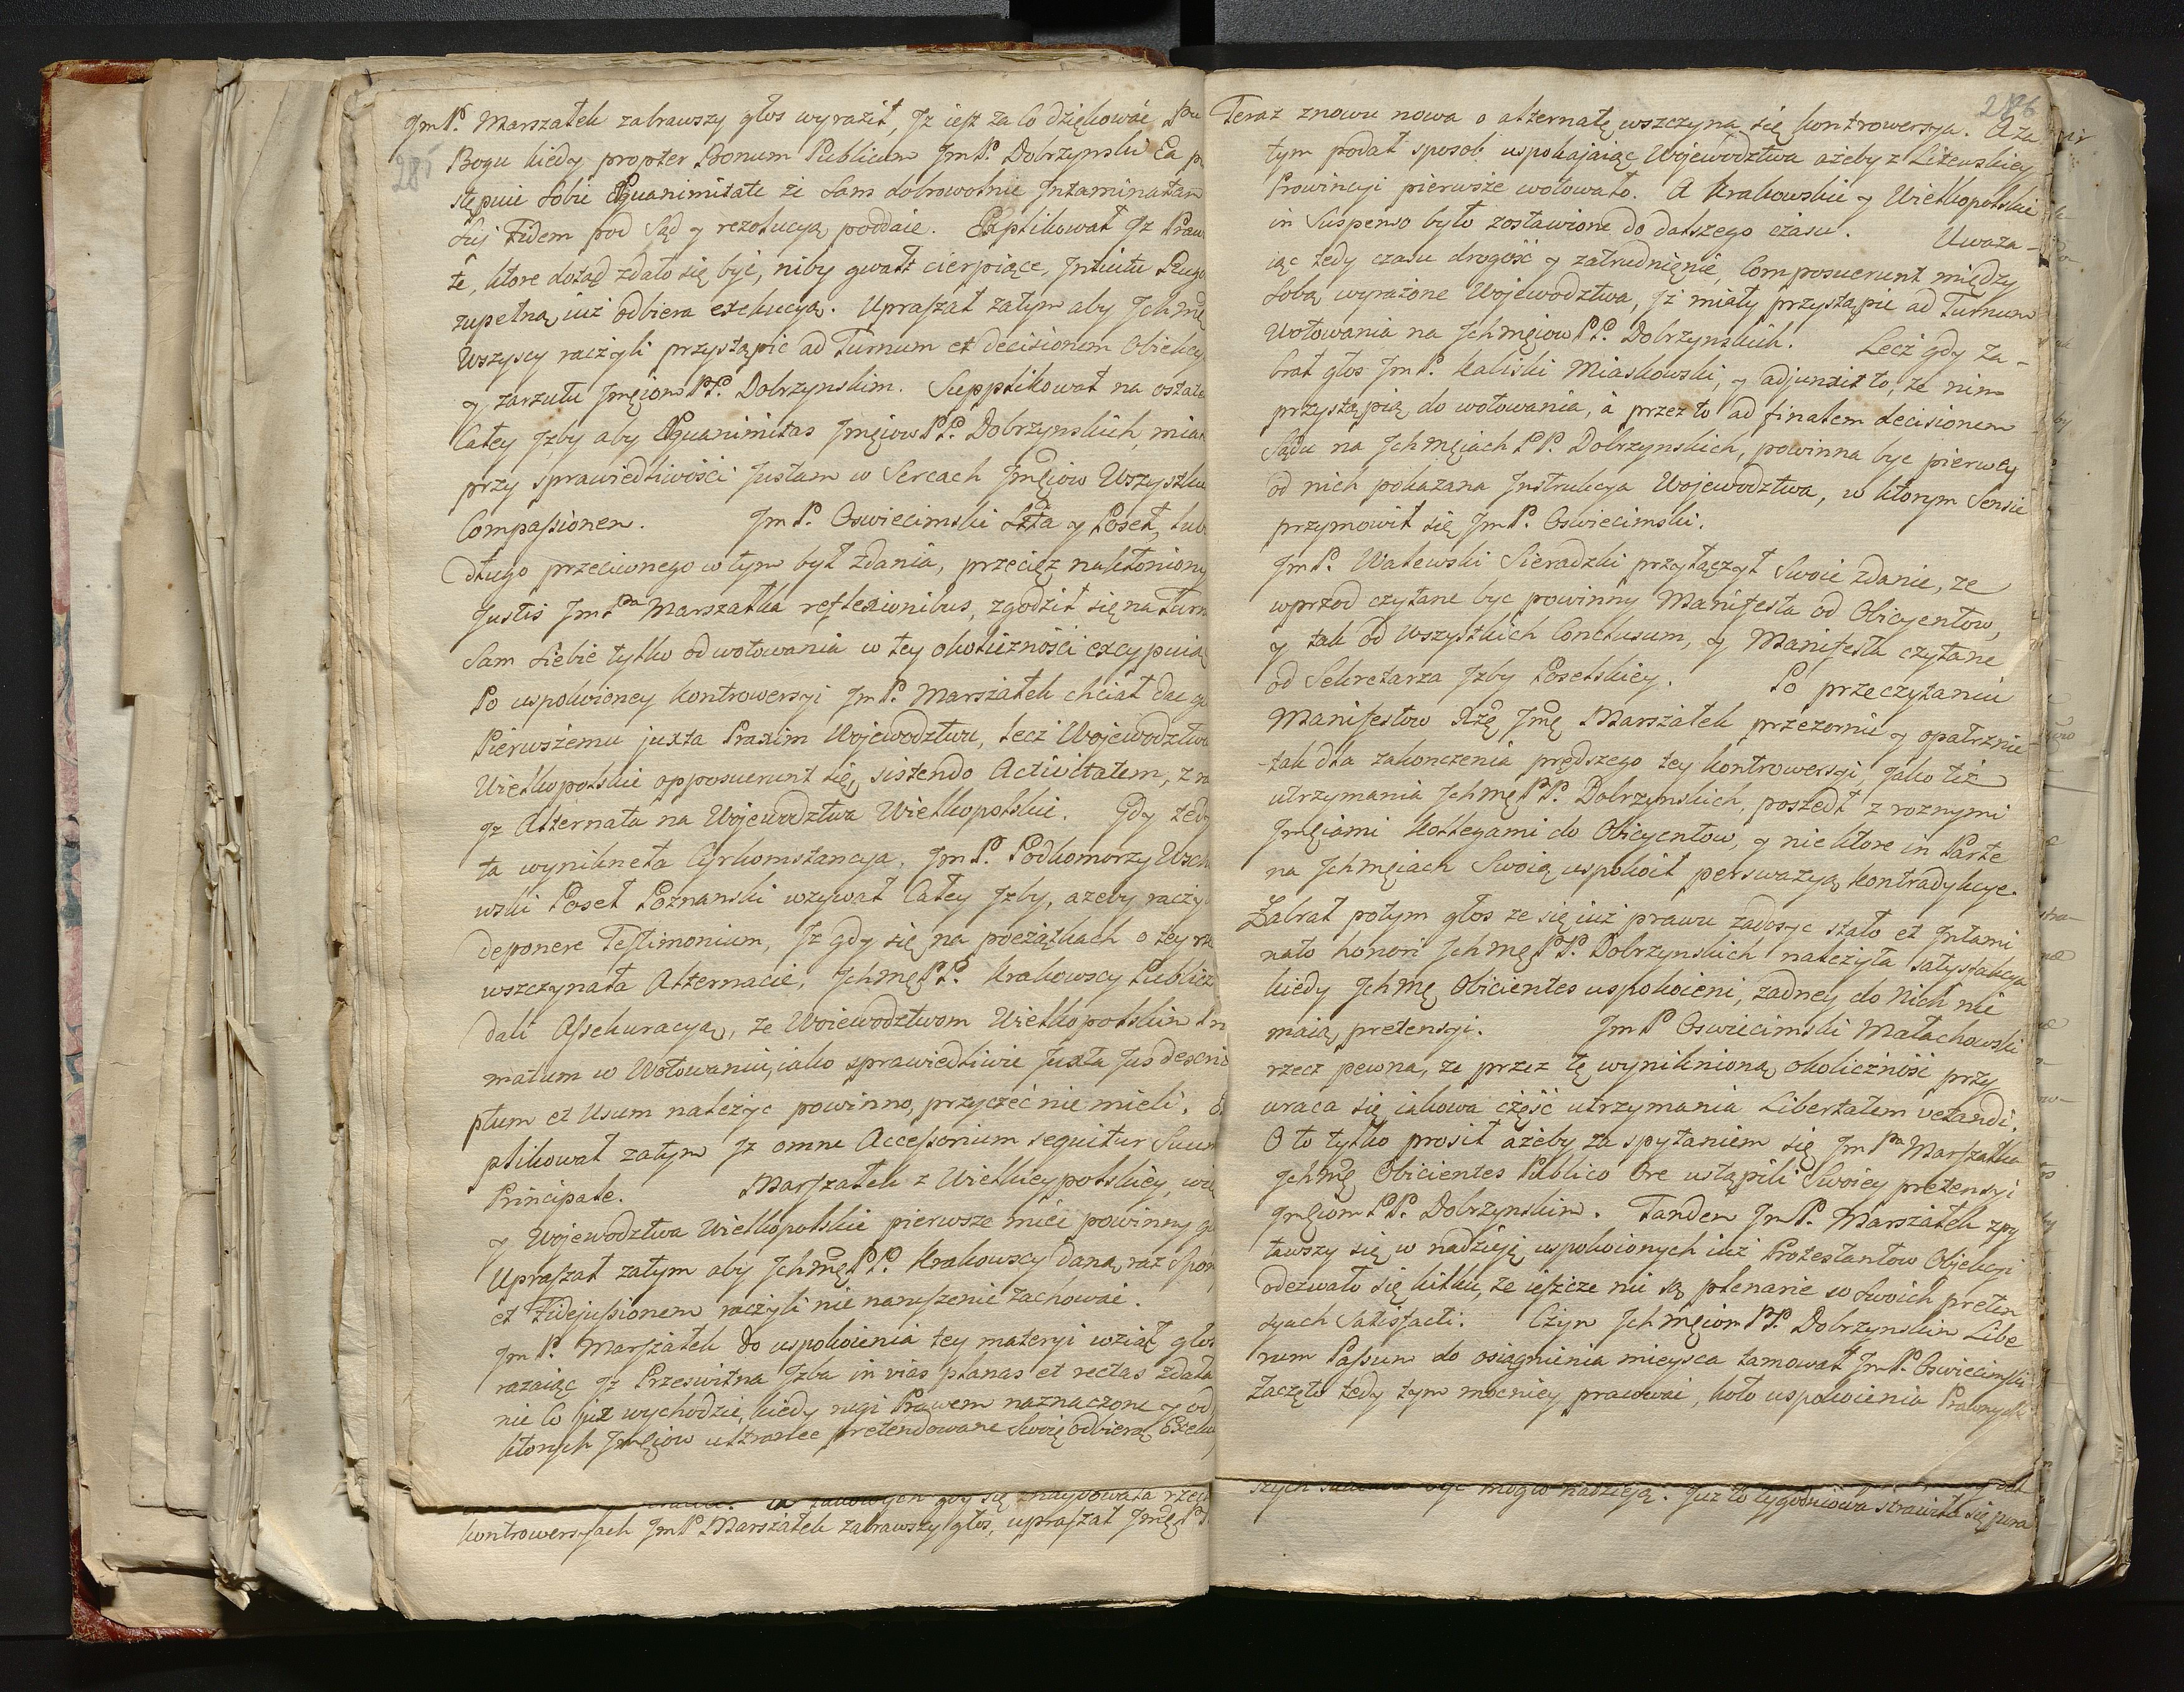 285
JmP. Marszałek zabrawszy głos wyraził, Jż iest za Co dziękować Pnu
Bogu kiedy propter Bonum Publicum JmP. Dobrzynski Ea
stępuie sobie Æquanimitate że Sam dobrowolnie Intaminatam
Suj Fidem pod Sąd y rezolucyą poddaie. Explikował Jż Praw
te, ktore dotąd zdało się być, niby gwałt cierpiące, Intuitu
zupełną iuż odbiera exekucyą. Upraszał zatym aby Jchmę
Wszyscy raczyli przystąpić ad Turnum et decisionem Obiekcyi
y zarzutu Jmęiom PP. Dobrzynskim. Supplikował na ostatek
Całey Jzby aby Æquanimitas Jmęiow PP. Dobrzynskich, miał
przy sprawiedliwości Justam w Sercach Jmęiow Wszystkich
Compassionem. JmP. Oswiecimski Sta y Poseł, lub
długo przeciwnego w tym był Zdania, przecięż nakłoniony
Justis JmPa Marszałka reflexionibus, zgodził się na Turn
Sam siebie tylko od wotowania w tey okoliczności excypuiąc
Po uspokoioney kontrowersyi JmP. Marszałek chciał dac
Pierwszemu juxta Praxim Wojewodztwu, lecz Wojewodztwa
Wielkopolskie opposuerunt się, sistendo Activitatem, z
Jż Alternata na Wojewodztwa Wielkopolskie. Gdy tedy
ta wyniknęła Cyrkomstancya. JmP. Podkomorzy Wscho
wski Poseł Poznanski wzywał Całey Jzby, ażeby raczyła
deponere Testimonium, Jż gdy się na początkach o tey
wszczynała Alternacie, JchmęPP. Krakowscy Publicznie
dali Assekuracyą, że Woiewodztwom Wielkopolskim Pri
matum w Wotowaniu, iako sprawiedliwie Juxta Jus descri
ptum et Usum należyc powinno, przyczeć nie mieli.
plikował zatym Jż omne Accessorium sequitur Suum
Principale. Marszałek z Wielkieypolskiey, więc
y Wojewodztwa Wielkopolskie pierwsze mieć powinny
Upraszał zatym aby JchmęPP. Krakowscy daną raz
et Fidejussionem raczyli nienaruszenie zachować.
JmP. Marszałek do uspokoienia tey materyi wziął głos
rażaiąc Jż Przeswitna Jzba in vias planas et rectas zdała
nie Co już wychodzić, kiedy Prawem naznaczone y od
ktorych Jmęiow ultronee pretendowane Swoię odbieraią
kontrowersyach JmP. Marszałek zabrawszy głos, upraszał JmęPP
286
Teraz znowu nowa o alternatę wszczyna się kontrowersya. A za
tym podał sposob uspokajaiąc Wojewodztwa ażeby z Litewskiey
Prowincyi pierwsze wotowało. A Krakowskie y Wielkopolskie
in Suspenso było zostawione do dalszego czasu. Uważa-
iąc tedy czasu drogość y zatrudnięnie, Composuerunt między
Sobą wyrażone Wojewodztwa, Jż miały przystąpic ad Turnum
Wotowania na Jchmęiow PP. Dobrzynskich. Lecz gdy Za-
brał głos JmP. Kaliski Miaskowski, y adjunxit to, że nim
przystąpią do wotowania, à przez to ad finalem decisionem
Sądu na Jchmęiach PP. Dobrzynskich, powinna byc pierwey
od nich pokazana Instrukcya Wojewodztwa, w ktorym Sensie
przymowił się JmP. Oswiecimski.
JmP. Walewski Sieradzki przyłączył Swoie zdanie, że
wprzod czytane byc powinny Manifesta od Obicyentow,
y tak od Wszystkich Conclusum, y Manifesta czytane
od Sekretarza Jzby Poselskiey. Po przeczytaniu
Manifestow Jmę Marszałek przezornie y opatrznie
tak dla zakonczenia prędszego tey kontrowersyi, jako też
utrzymania JchmęPP. Dobrzynskich, poszedł z roznymi
Jmęiami Kollegami do Obicyentow, y niektore in Parte
na Jchmęiach Swoią uspokoił perswazyą kontradykcye.
Zabrał potym głos że się iuż prawu zadosyc stało et Intami
nato honori JchmęPP. Dobrzynskich należyta satysfakcya
kiedy Jchmę Obicientes uspokoieni, żadney do Nich nie
maią pretensyi. JmP Oswiecimski Małachowski
rzecz pewna, że przez tę wyniknioną okoliczność przy
wraca się iakowa część utrzymania Libertatem vetandi.
O to tylko prosił ażeby za spytaniem się JmPa Marszałka
Jchmę Obicientes Publico Ore ustąpili Swoiey pretensyi
Jmęiom PP. Dobrzynskim. Tandem JmP. Marszałek zpy
tawszy się w nadzieję uspokoionych iuż Protestantow Objekcyi
odezwało się kilku, że ieszcze nie są plenarie w swoich preten
syach Satisfacti. Czym Jchmęiom PP. Dobrzynskim Libe
rum Passum do osiągnienia mieysca tamował JmP. Oswiecimski
Zaczęto tedy tym mocniey pracować, koło uspokoienia
byc mogło nadzieją. Już to tygodniowa strawiła się